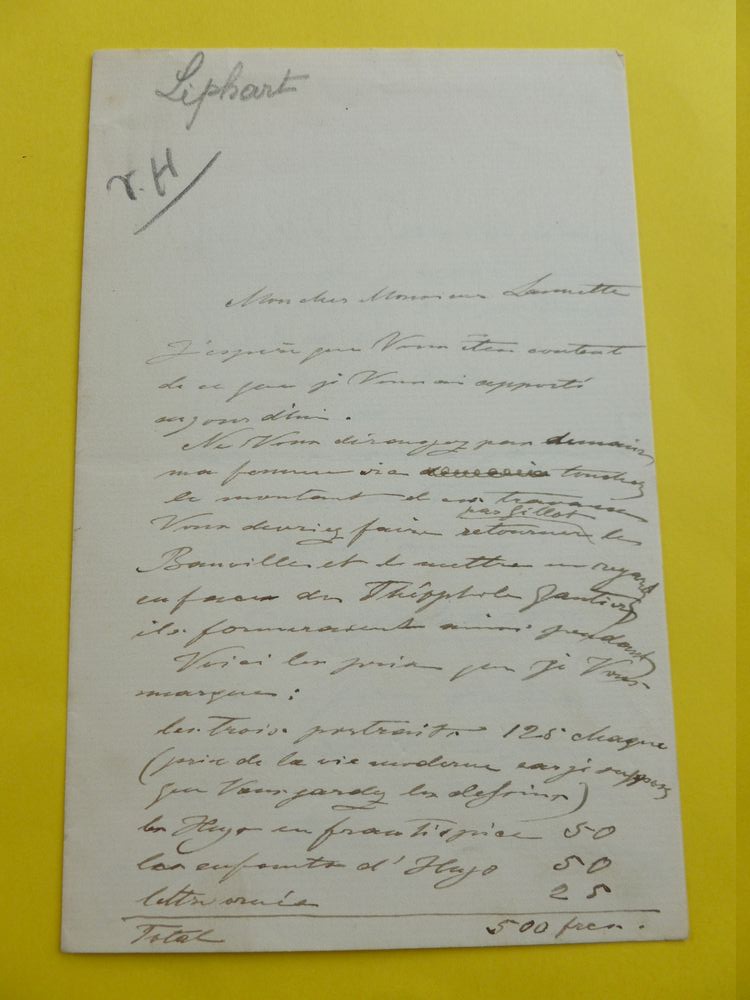 Liphart
V. H
Mon cher Monsieur Lannette
J'espère que Vous êtes content
de ce que je Vous ai apporté
aujourd'hui.
Ne Vous dérangez pas demain
ma femme toucher
le montant travaux
par Gillot
Vous devriez faire retourner les
Banville et le mettre en regard
en face du Théophile Gautier
ils formeraient ainsi pendant
Voici les prix que je Vous
marque :
les trois portraits 125 chaque
(prix de la vie moderne car je suppose
que Vous gardez les dessins)
les Hugo en frontispice 50
les enfants d'Hugo 50
lettre ornée 25
Total 500 frcs.